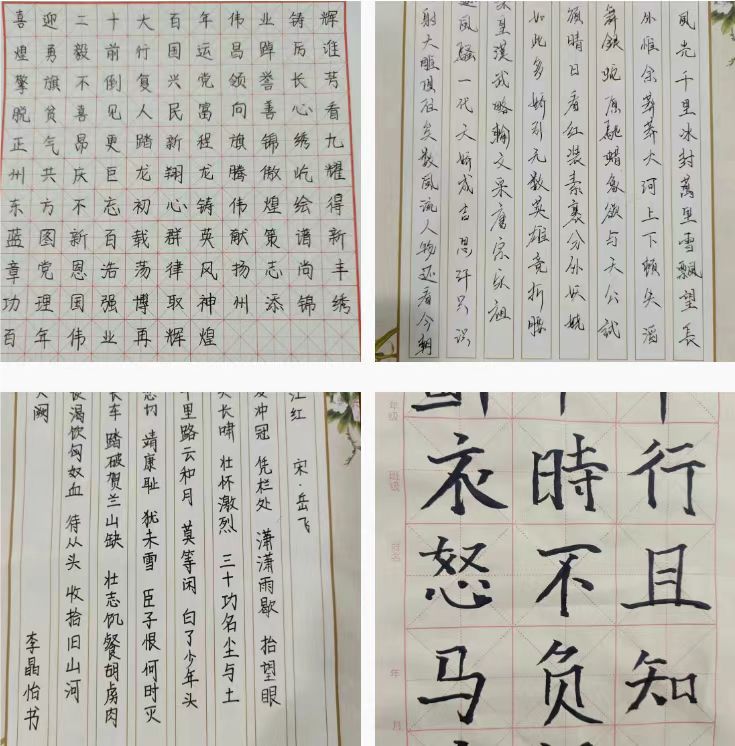 喜迎二十大百年伟业铸辉
煌勇毅前行国运昌踔厉谁
擎旗不倒复兴党领誉长芳
脱贫喜见人民富向善心看
正气昂更踏新程旗锦绣九
州共庆巨龙翔龙腾傲屹耀
东方不忘初心铸伟煌绘得
蓝图新百载群英献策谱新
章党恩浩荡律风扬志尚丰
功理国强博取神州添锦绣
百年伟业再辉煌
风光千里冰封萬里雪飘望長
外惟余莽莽大河上下顿失滔
舞银蛇原驰蜡象欲与天公試
须晴日看红装素裹分外妖娆
如此多娇引无数英雄竞折腰
秦皇漢武略输文采唐宗宋祖
风骚一代天娇成吉思汗只识
射大雕俱往矣数风流人物还看今朝
江红 宋·岳飞
发冲冠 凭栏处 潇潇雨歇 抬望眼
天长啸 壮怀激烈 三十功名尘与土
千里路云和月 莫等闲 白了少年头
悲切 靖康耻 犹未雪 臣子恨 何时灭
长车 踏破贺兰山缺 壮志饥餐胡虏肉
渴饮匈奴血 待从头 收拾旧山河
天阙
李晶怡书
行且知
時不负
衣怒马
年级
班级
姓名
年
月